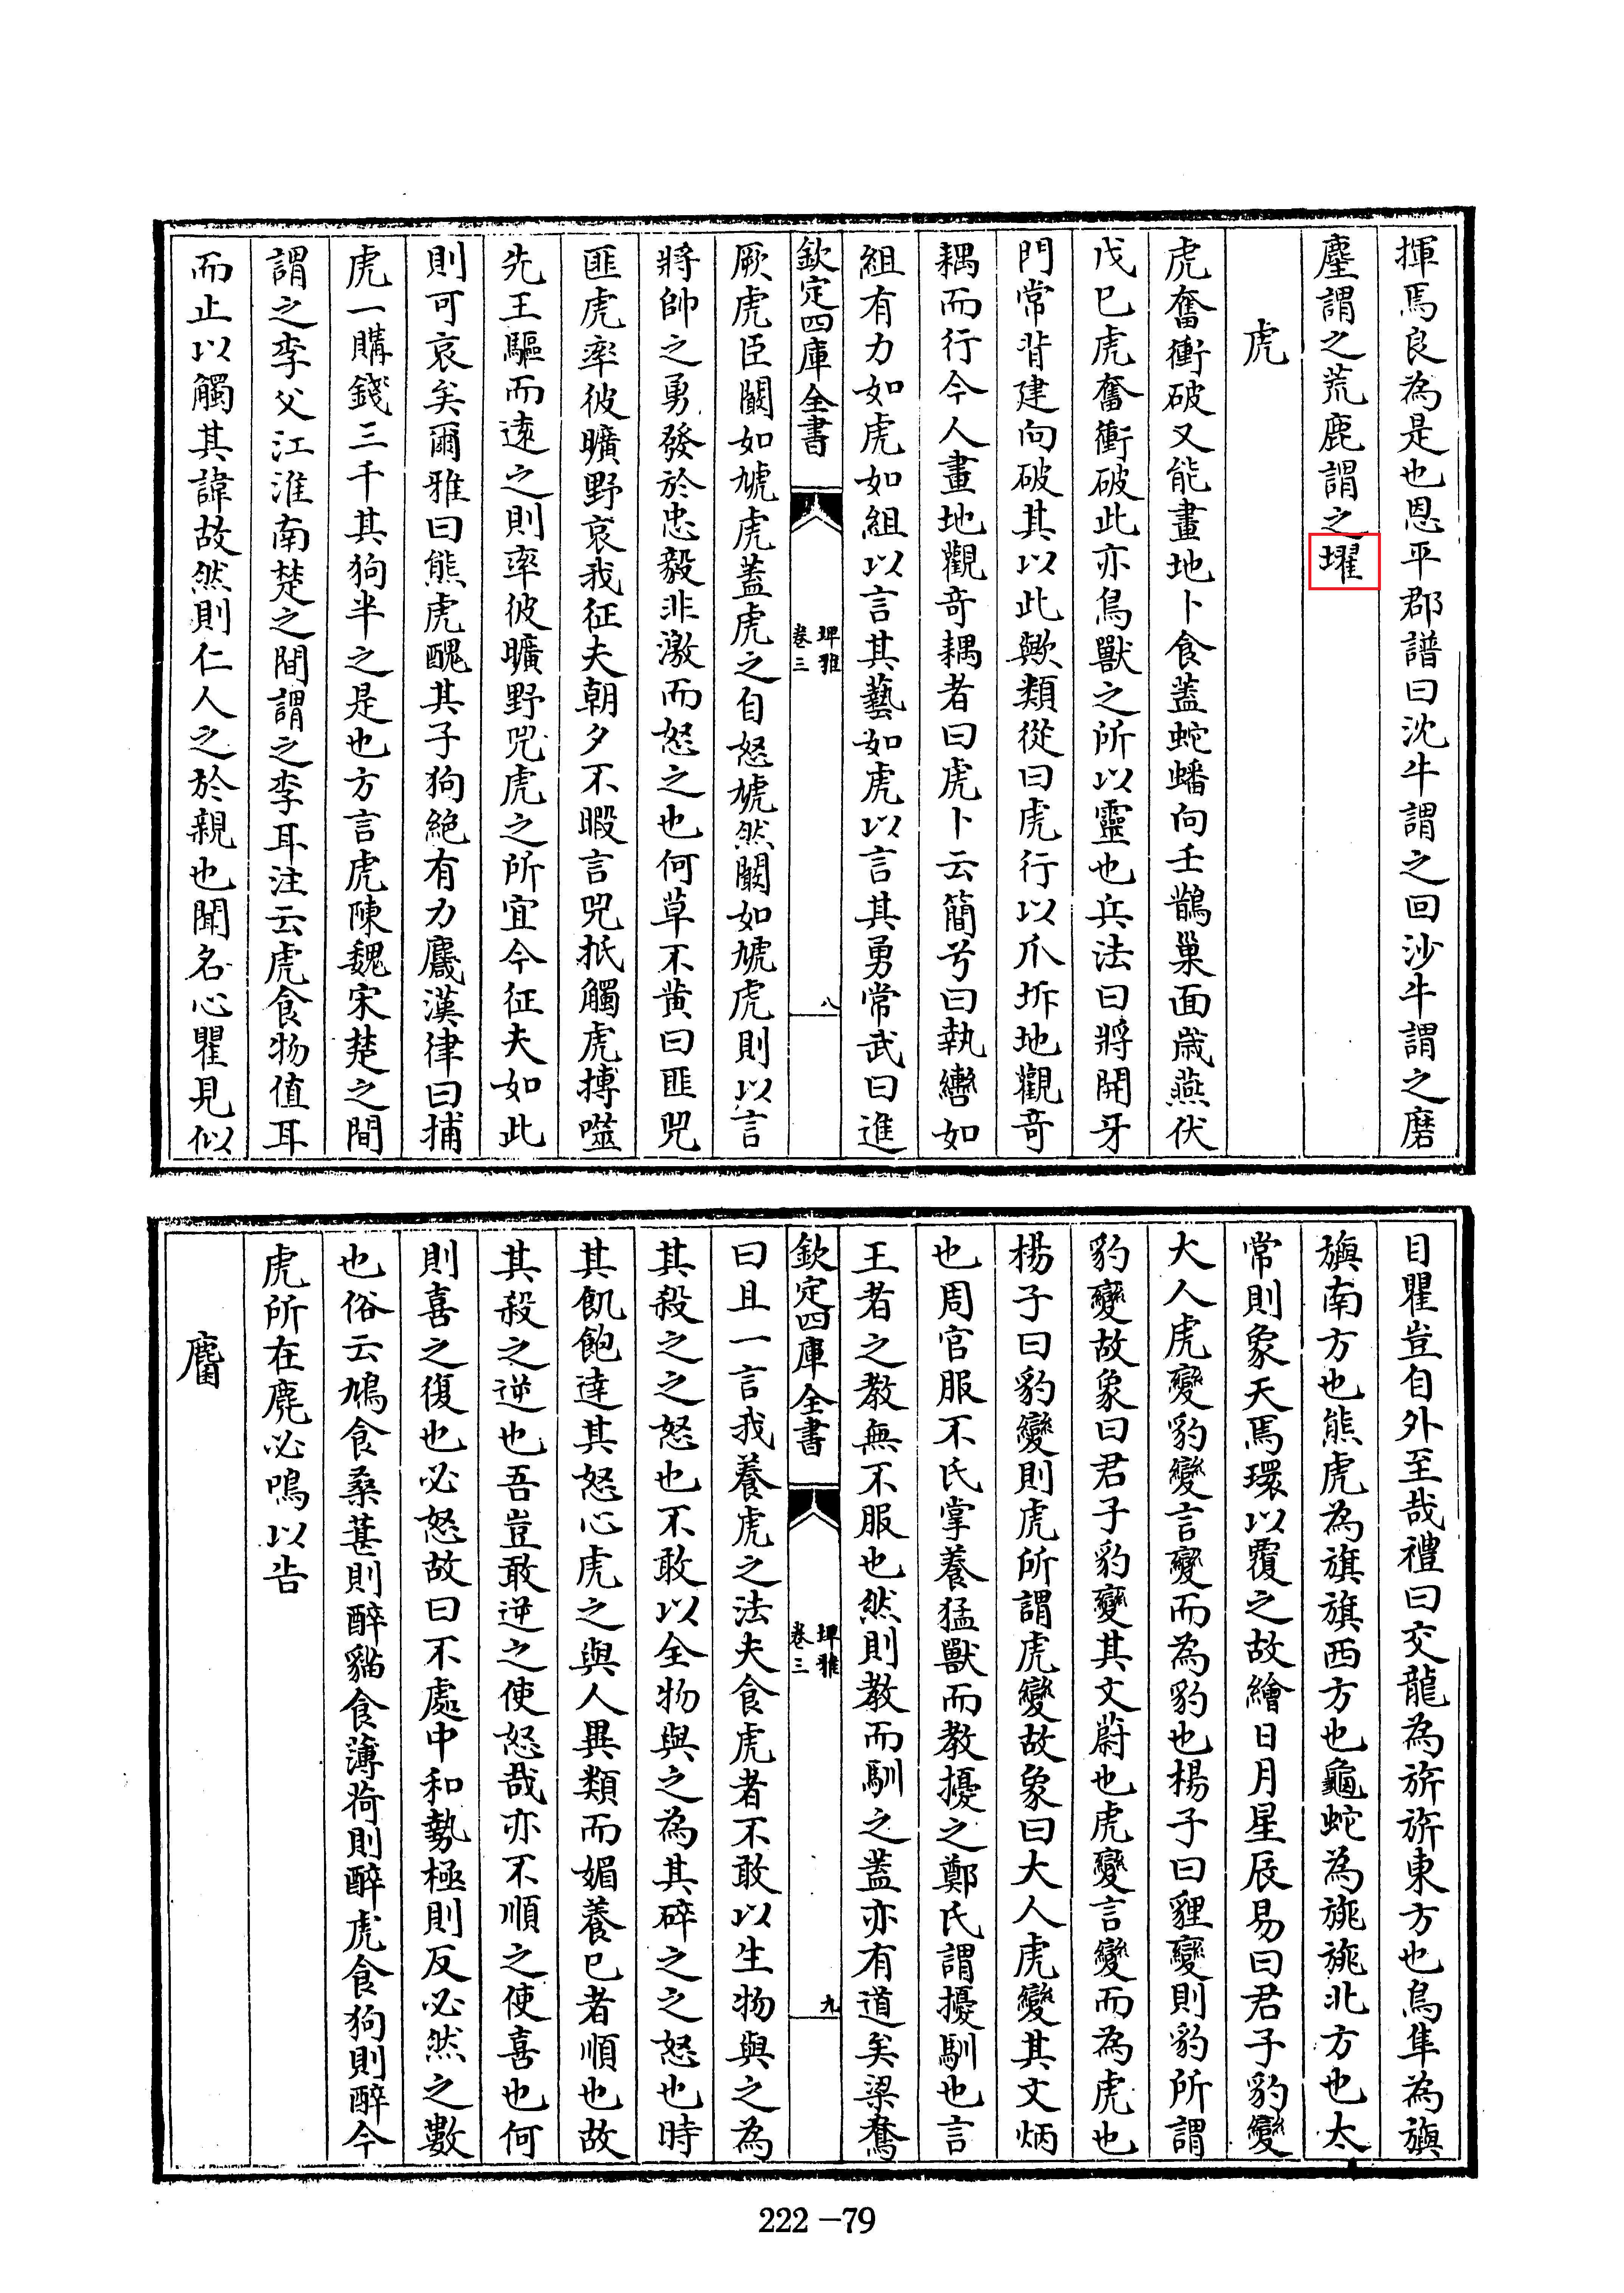 揮焉良為是也恩平郡譜曰沈牛謂之回沙牛謂之磨
塵謂之荒鹿謂之㙤
虎
虎奮衝破又能畫地卜食蓋蛇蟠向壬鵲巢面歲燕伏
戊巳虎奮衝破此亦鳥獸之所以靈也兵法曰將開牙
門常背建向破其以此歟類從曰虎行以爪坼地觀奇
耦而行今人畫地觀奇耦者曰虎卜云簡兮曰執轡如
組有力如虎如組以言其藝如虎以言其勇常武曰進
欽定四庫全書
埤雅
卷三
八
厥虎臣闞如虓虎蓋虎之自怒虓然闞如虓虎則以言
將帥之勇發於忠毅非激而怒之也何草不黃曰匪兕
匪虎率彼曠野哀我征夫朝夕不暇言兕抵觸虎搏噬
先王驅而遠之則率彼曠野兕虎之所宜今征夫如此
則可哀矣爾雅曰熊虎醜其子狗絕有力麙漢律曰捕
虎一購錢三千其狗半之是也方言虎陳魏宋楚之間
謂之李父江淮南楚之間謂之李耳注云虎食物值耳
而止以觸其諱故然則仁人之於親也聞名心瞿見似
目瞿豈自外至哉禮曰交龍為旂旂東方也鳥隼為旟
旟南方也熊虎為旗旗西方也龜蛇為旐旐北方也太
常則象天焉環以覆之故繪日月星辰易曰君子豹變
大人虎變豹變言變而為豹也楊子曰貍變則豹所謂
豹變故象曰君子豹變其文蔚也虎變言變而為虎也
楊子曰豹變則虎所謂虎變故象曰大人虎變其文炳
也周官服不氏掌養猛獸而教擾之鄭氏謂擾馴也言
王者之教無不服也然則教而馴之蓋亦有道矣梁鴦
欽定四庫全書
埤雅
卷三
九
曰且一言我養虎之法夫食虎者不敢以生物與之為
其殺之之怒也不敢以全物與之為其碎之之怒也時
其飢飽達其怒心虎之與人異類而媚養已者順也故
其殺之逆也吾豈敢逆之使怒哉亦不順之使喜也何
則喜之復也必怒故曰不處中和勢極則反必然之數
也俗云鳩食桑葚則醉貓食薄荷則醉虎食狗則醉今
虎所在麂必鳴以告
麕
222-79